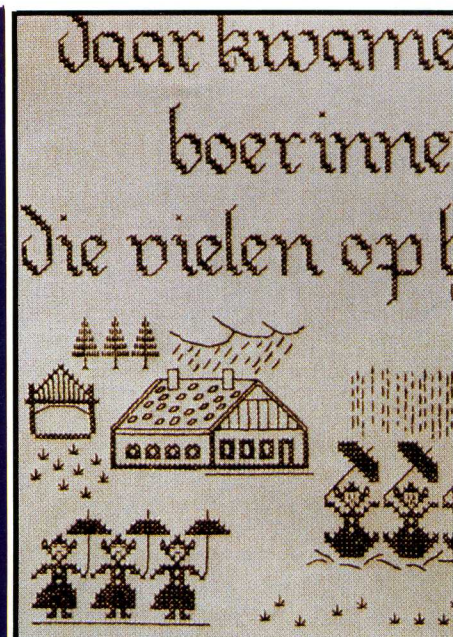 daar kwame
boerinne
die vielen op